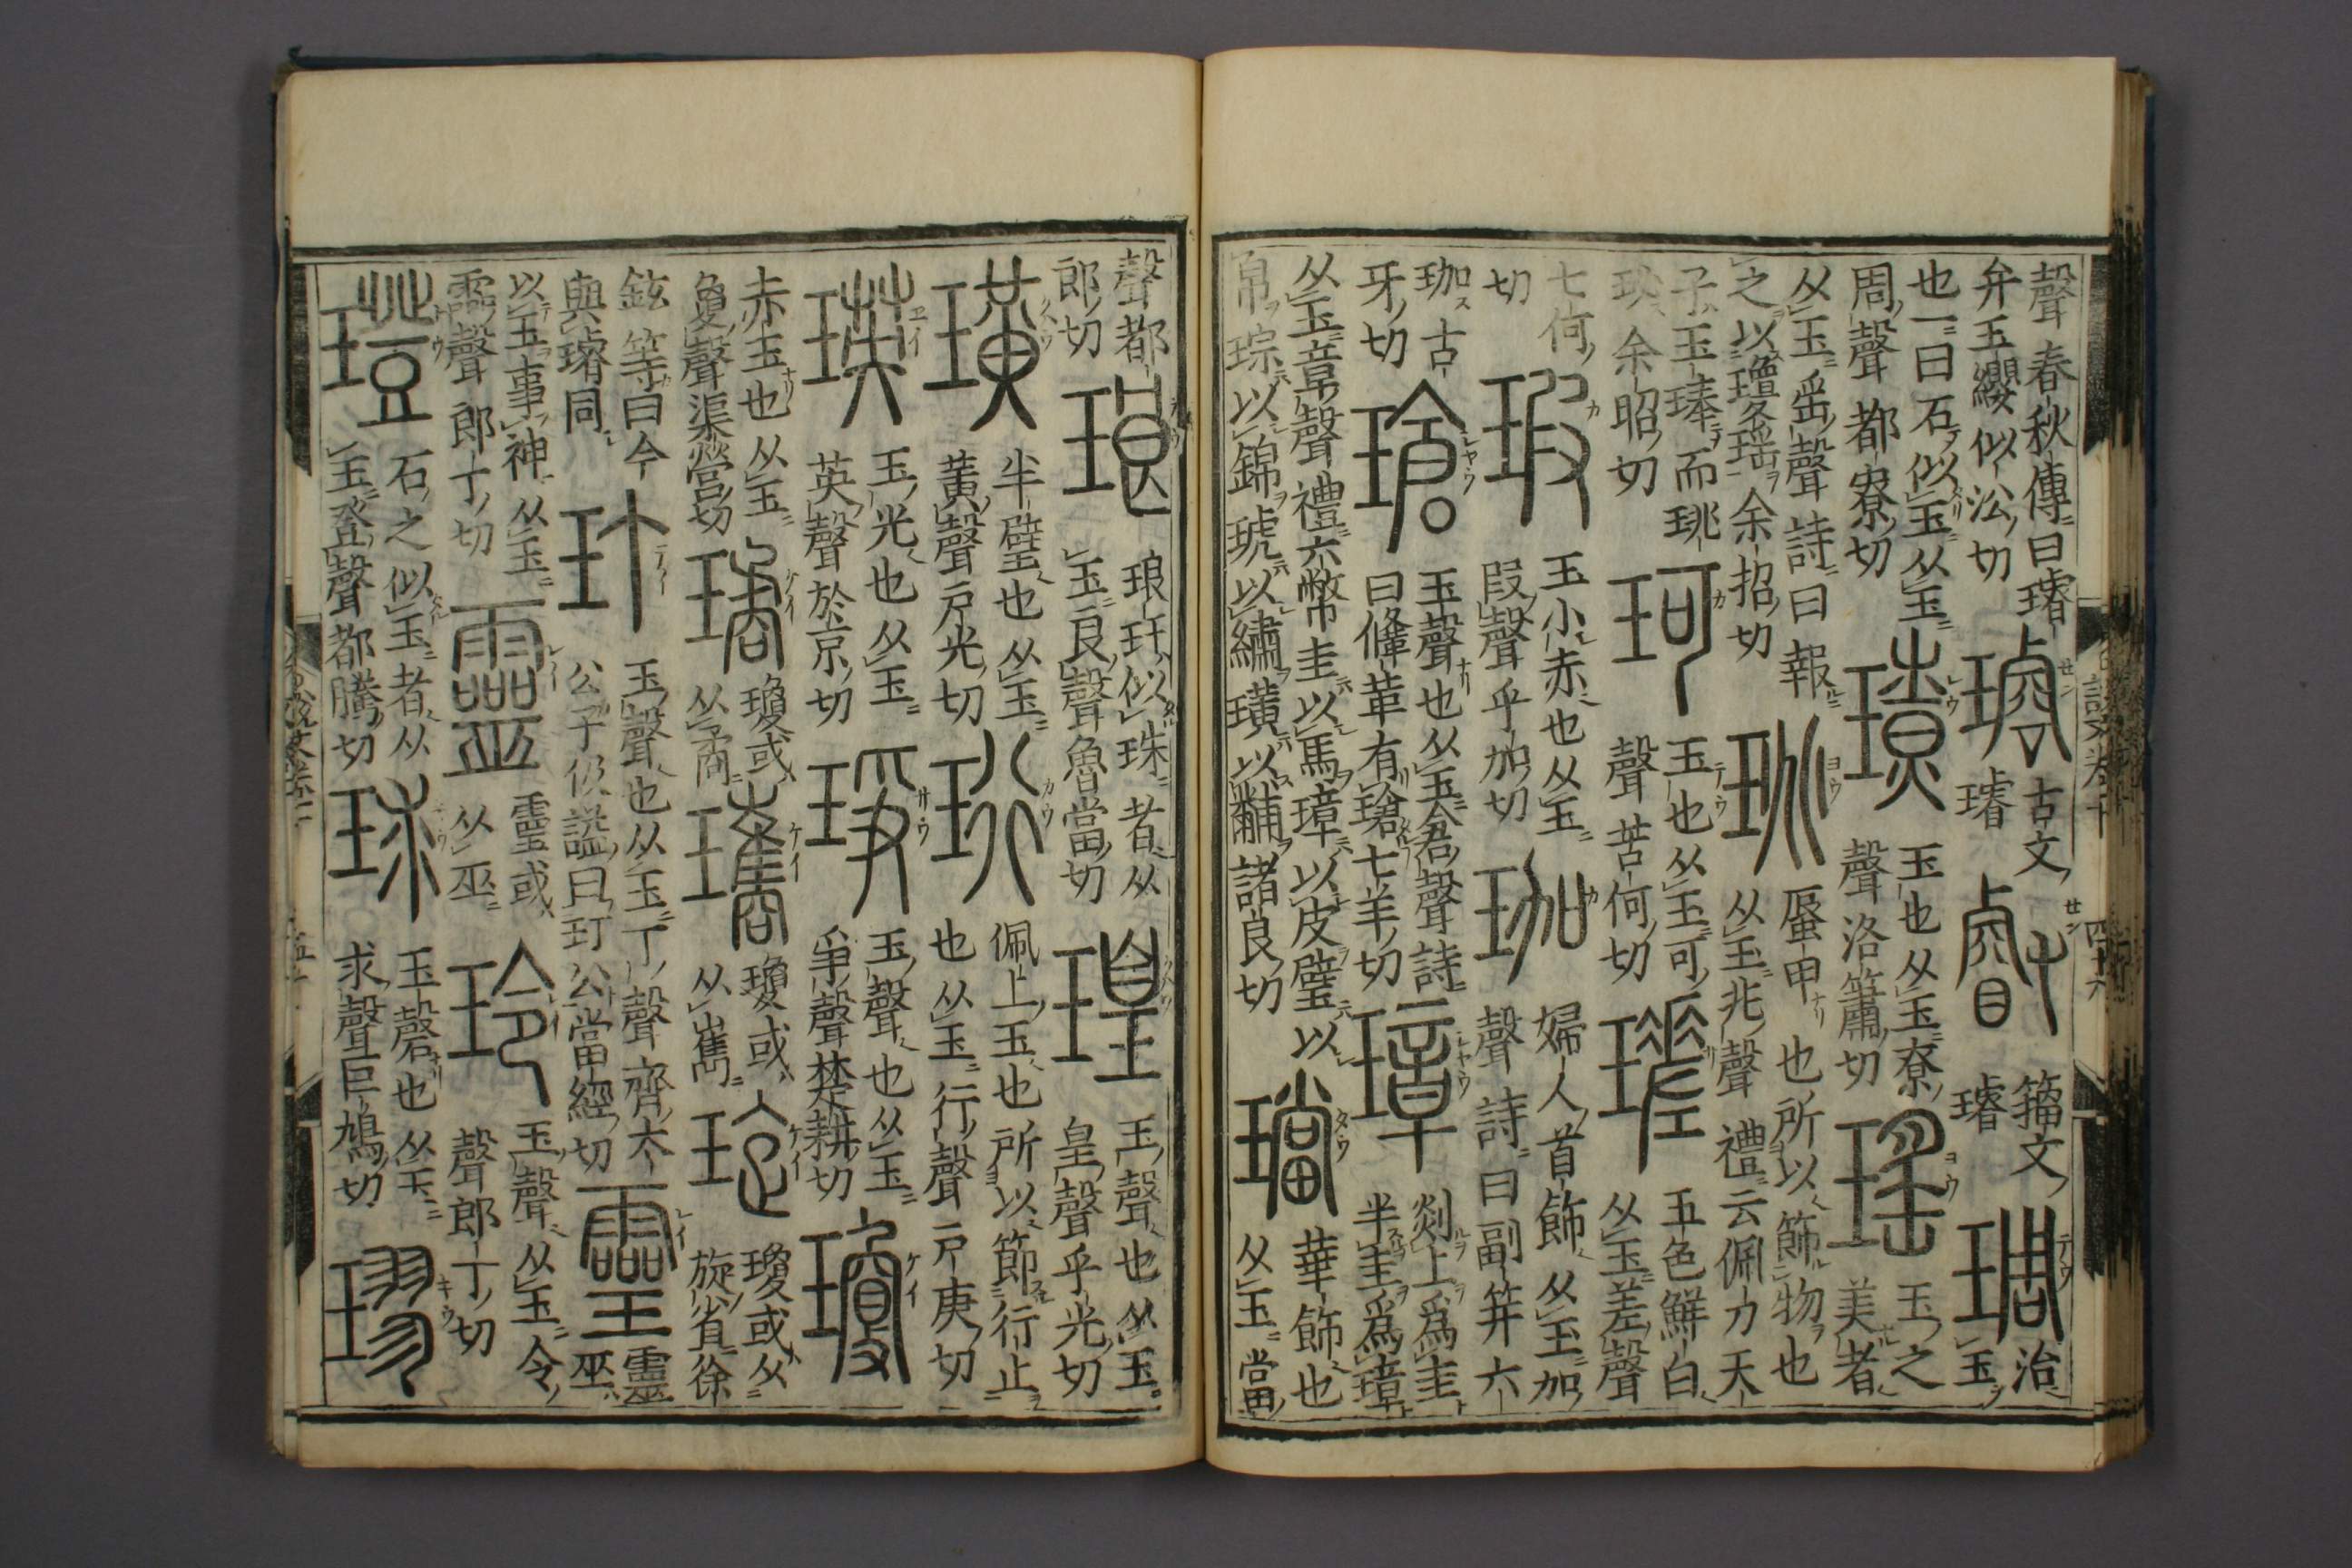 聲春秋傳曰璿
弁玉纓似㳂切
璿
古文
璿
籀文
璿
琱
治
玉
也一曰石似玉从玉
周聲都寮切
璙
玉也从玉尞
聲洛簫切
瑤
玉之
美者
从玉䍃聲詩曰報
之以瓊瑤余招切
珧
蜃甲也所以飾物也
从玉兆聲禮云佩刀天
子玉琫而珧
珧余昭切
珂
玉也从玉可
聲苦何切
瑳
五色鮮白
从玉差聲
七何
切
瑕
玉小赤也从玉
叚聲乎加切
珈
婦人首飾从玉加
聲詩曰副笄六
珈古
牙切
瑲
玉聲也从玉倉聲詩
曰鞗革有瑲七羊切
璋
剡上爲圭
半圭爲璋
从玉章聲禮六幣圭以馬璋以皮璧以
帛琮以錦琥以繡璜以黼諸良切
璫
華飾也
从玉當
聲都
郎切
琅
琅玕似珠者从
玉良聲魯當切
瑝
玉聲也从玉
皇聲乎光切
璜
半璧也从玉
黃聲戶光切
珩
佩上玉也所以節行止
也从玉行聲戶庚切
瑛
玉光也从玉
英聲於京切
琤
玉聲也从玉
爭聲楚耕切
瓊
赤玉也从玉
敻聲渠營切
璚
瓊或
从矞
瓗
瓊或
从巂
琁
瓊或从
旋省徐
鉉等曰今
與璿同
玎
玉聲也从玉丁聲齊太
公子伋諡曰玎公當經切
靈
靈巫
以玉事神从玉
霝聲郎丁切
靈
靈或
从巫
玲
玉聲从玉令
聲郎丁切
璒
石之似玉者从
玉登聲都騰切
球
玉磬也从玉
求聲巨鳩切
璆